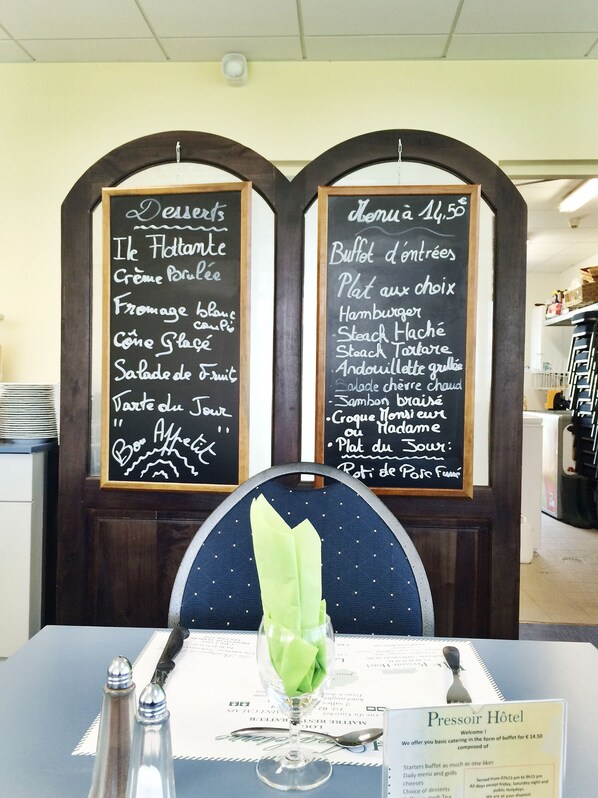 Desserts
Ile Flottante
Crème Brulée
Fromage blanc
coulis
Cône Glaçé
Salade de Fruits
Tarte du Jour
" Bon Appetit "
Menu à 14,50€
Buffet d'éntrées
Plat aux choix
Hamburger
Steack Haché
Steack Tartare
Andouillette grillée
Salade chèvre chaud
Jambon braisé
• Croque Monsieur
ou Madame
• Plat du Jour:
Roti de Porc Fumé
Pressoir Hôtel
Pressoir Hôtel
Welcome !
We offer you basic catering in the form of buffet for € 14.50
composed of
Starters Buffet as much as you like
Daily menu and grills
cheeses
Choice of desserts